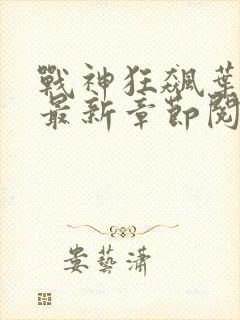 戰神狂飆葉
最新章節閱
婁藝瀟